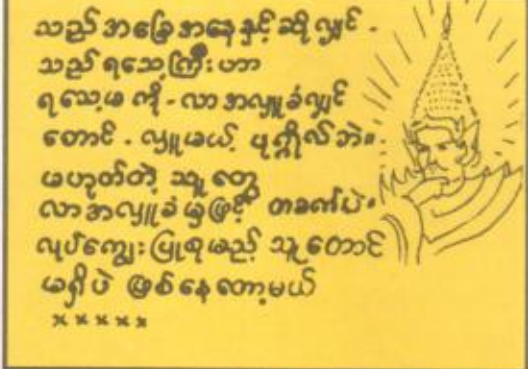 သည်အခြေအနေနှင့်ဆိုလျှင် -
သည်ရသေ့ကြီးဟာ
ရသေ့မကို - လာအလှူခံလျှင်
တောင် - လှူမယ့် ပုဂ္ဂိုလ်ဘဲ။
မဟုတ်တဲ့ သူတွေ
လာအလှူခံမှဖြင့် တခဏ်ပဲ။
လုပ်ကျွေးပြုစုမည့် သူတောင်
မရှိပဲ ဖြစ်နေတော့မယ်
× × × × ×